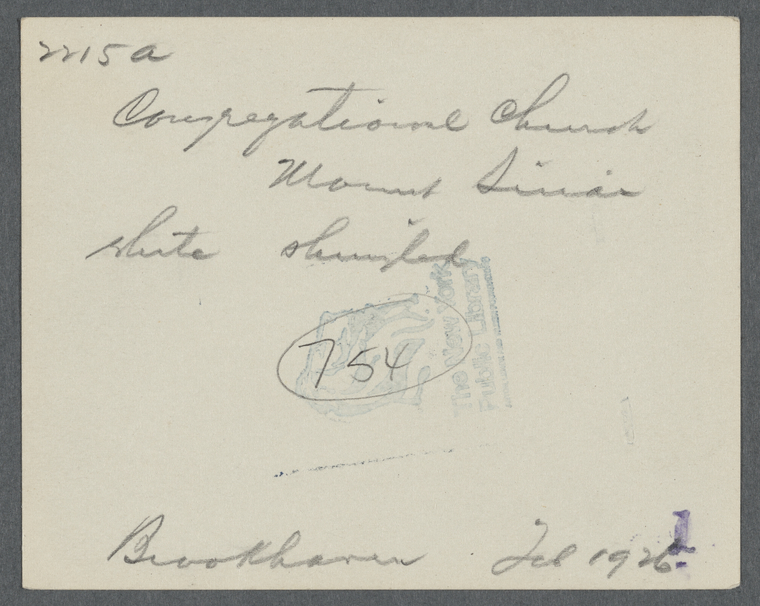 2215a
Congregational Church
Mount Sinai
white shingled
The New York
Public Library
754
Brookhaven Feb 1926